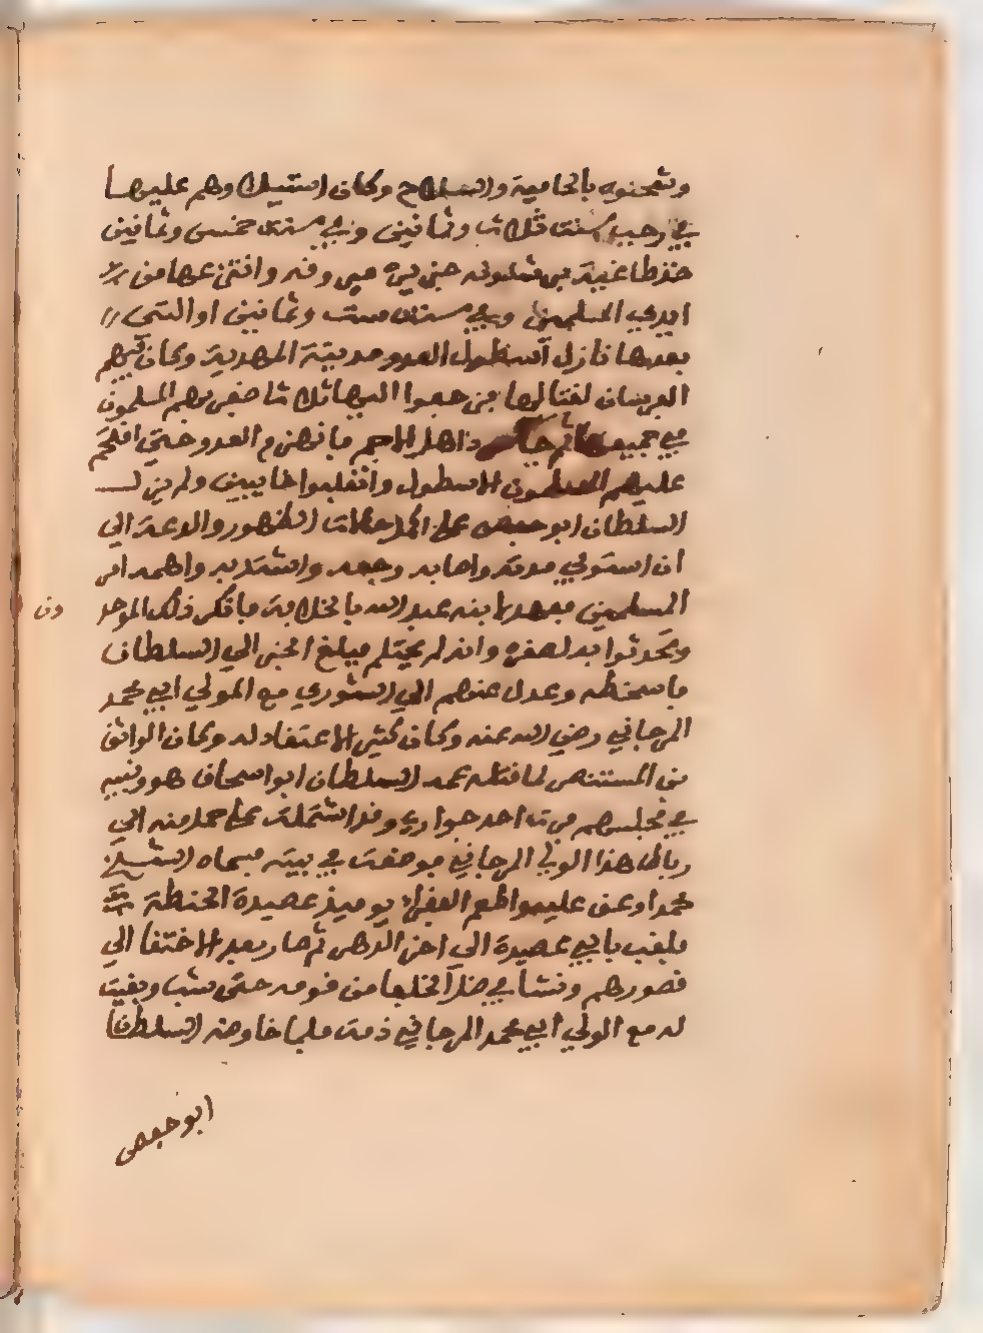 وشحنوه بالحامية والسلاح وكان استيلاؤهم عليها
في رجب سنت ثلاث وثمانين وفي سنت خمس وثمانين
طاغية برشلونه جزيرة ميورقه وانتزعها من
ايدي المسلمين وفي سنت ست وثمانين او التي
بعدها نازل اسطول العدو مدينة المهدية وكان فيهم
الفرسان لقتالها فزحفوا اليها ثلاثا ظفر بهم المسلمون
في جميعها ثم جا اهل الاجم فانهزم العدو حتى اقتحم
عليهم المسلمون الاسطول وانقلبوا خايبين ولم يزل
السلطان ابو حفص على اكمل حالات الظهور والدعة الى
ان استوفى مدته واصابه وجعه واشتد به واهمه امر
المسلمين فعهد لابنه عبد الله بالخلافة فانكر ذلك الموحد
ون
وتحدثوا به لصغره وانه لم يحتلم فبلغ الخبر الى السلطان
فاسخطه وعدل عنهم الى الشورى مع المولي ابي محمد
المرجاني رضي الله عنه وكان كثير الاعتقاد له وكان الواثق
بن المستنصر لما قتله عمه السلطان ابو اسحاق هو وبنيه
في مجلسهم فرت احد جواريه وقد اشتملت على حمل منه الى
رباط هذا الولي المرجاني فوضعت في بيته فسماه الشيخ
محمدا وعق عليه واطعم الفقراء يوميذ عصيدة الحنطة
فلقب بابي عصيدة الى اخر الدهر ثم صار بعد الاختفا الى
قصورهم ونشا في ظل الخلفا من قومه حتى شب وبقيت
له مع الولي ابي محمد المرجاني ذمت فلما فاوضه السلطان
ابو حفص